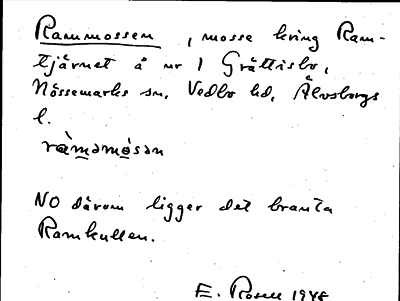 Rammossen, mosse kring Ram-
tjärnet å nr 1 Gråttisbo,
Nössemarks sn, Vedbo hd, Älvsborgs
l.
ràməmòsən
NO därom ligger det branta
Ramkullen.
E. Rosell 1948